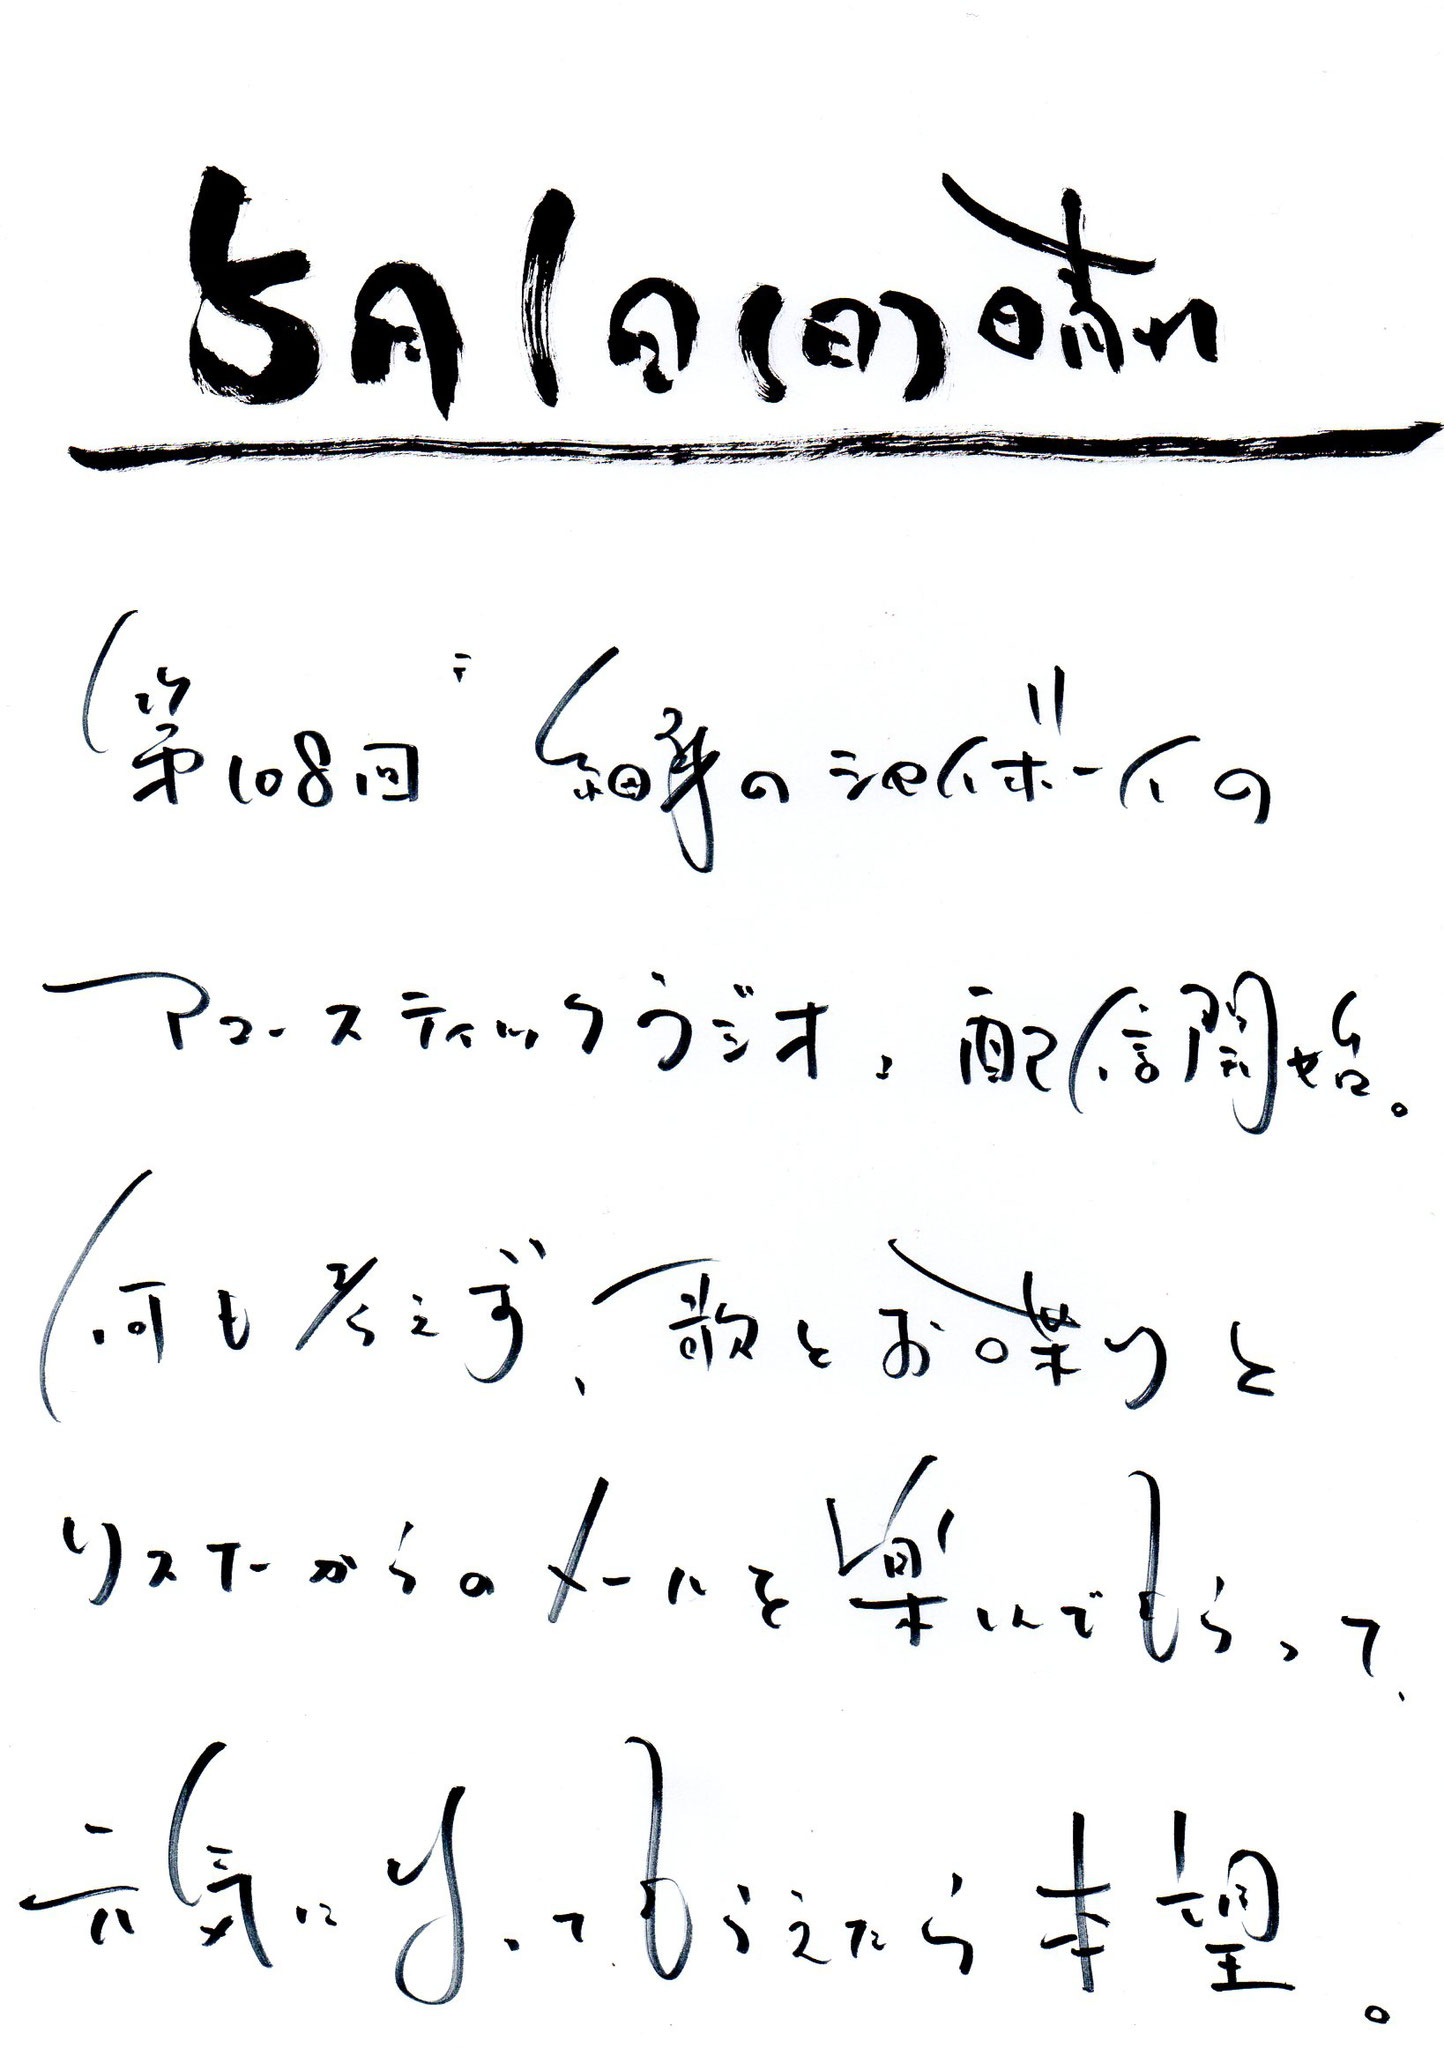 5月1日(日)晴れ
第108回 細身のシャイボーイの
アコースティックラジオ、配信開始。
何も考えず、歌とお喋りと
リスナーからのメールを楽しんでもらって、
元気になってもらえたら本望。